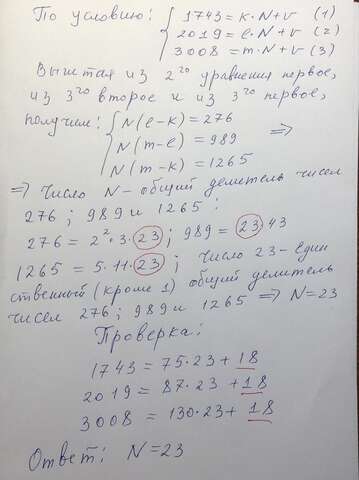 По условию: { 1743 = k·N+r (1)
2019 = l·N+r (2)
3008 = m·N+r (3)
Вычтая из 2го уравнения первое,
из 3го второе и из 3го первое,
получим: { N(l-k) = 276
N(m-l) = 989 ⇒
N(m-k) = 1265
⇒ Число N - общий делитель чисел
276; 989 и 1265:
276 = 2²·3·23; 989 = 23·43
1265 = 5·11·23; число 23 - един
ственный (кроме 1) общий делитель
чисел 276; 989 и 1265 ⇒ N=23
Проверка:
1743 = 75·23 + 18
2019 = 87·23 + 18
3008 = 130·23 + 18
Ответ: N=23